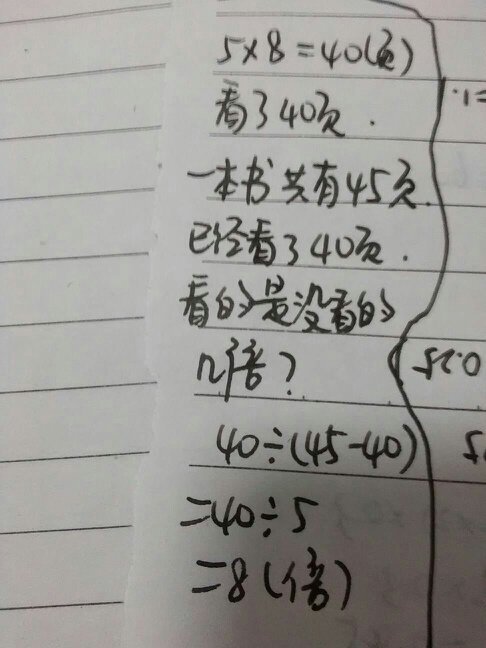 5×8=40(页)
看了40页.
一本书共有45页.
已经看了40页.
看的是没看的
几倍?
40÷(45-40)
=40÷5
=8(倍)